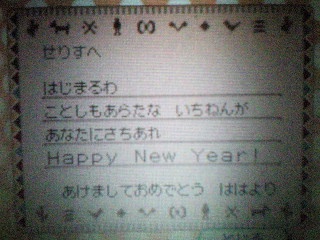 せりすへ
はじまるわ
ことしもあらたな　いちねんが
あなたにさちあれ
Happy New Year!
あけましておめでとう　ははより